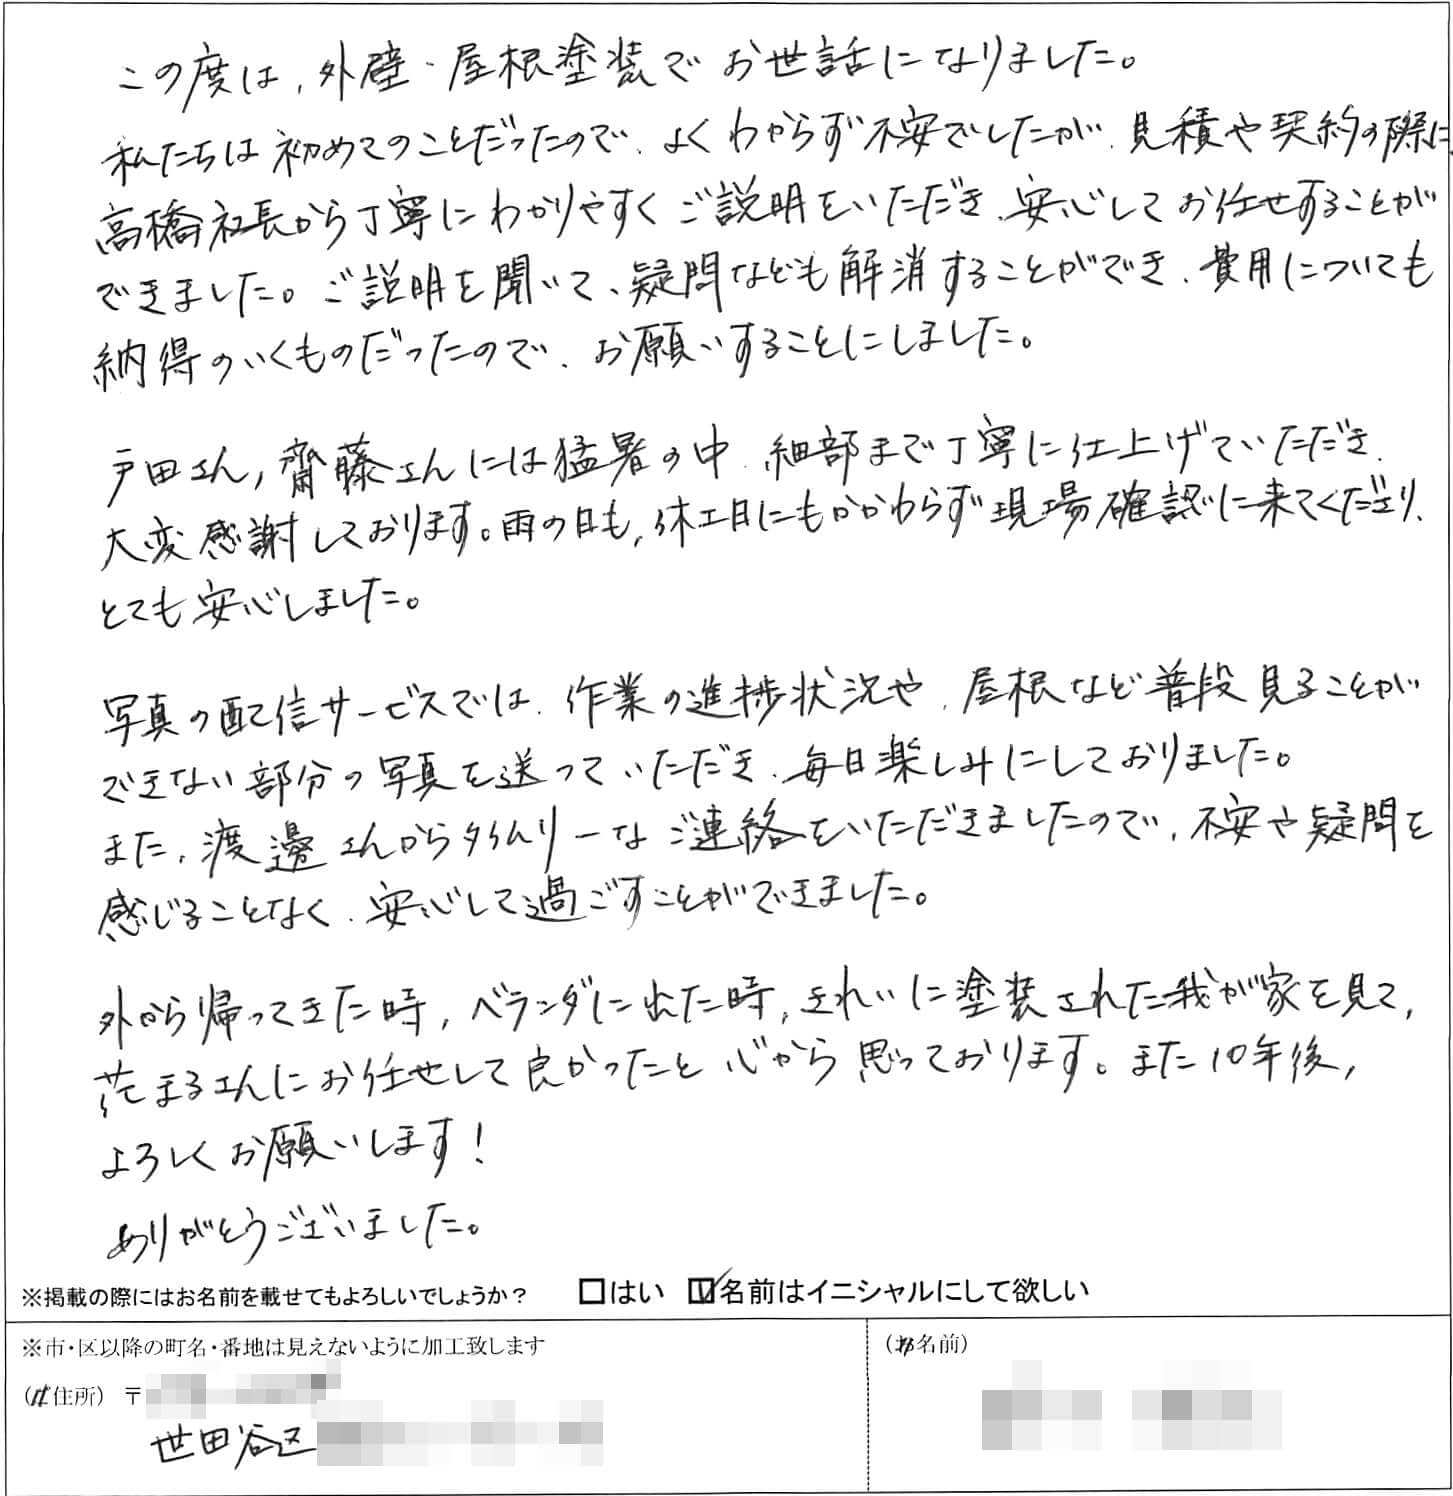 この度は、外壁・屋根塗装でお世話になりました。
私たちは初めてのことだったので、よくわからず不安でしたが、見積や契約の際に、
高橋社長から丁寧にわかりやすくご説明をいただき、安心してお任せすることが
できました。ご説明を聞いて、疑問なども解消することができ、費用についても
納得のいくものだったので、お願いすることにしました。
戸田さん,齋藤さんには猛暑の中、細部まで丁寧に仕上げていただき、
大変感謝しております。雨の日も,休工日にもかかわらず現場確認に来てくださり、
とても安心しました。
写真の配信サービスでは、作業の進捗状況や、屋根など普段見ることが
できない部分の写真を送っていただき、毎日楽しみにしておりました。
また,渡邊さんからタイムリーなご連絡をいただきましたので,不安や疑問を
感じることなく、安心して過ごすことができました。
外から帰ってきた時,ベランダに出た時,きれいに塗装された我が家を見て,
花まるさんにお任せして良かったと心から思っております。また10年後,
よろしくお願いします!
ありがとうございました。
※掲載の際にはお名前を載せてもよろしいでしょうか? □はい ☑名前はイニシャルにして欲しい
※市・区以降の町名・番地は見えないように加工致します
(住所) 〒
世田谷区
(名前)